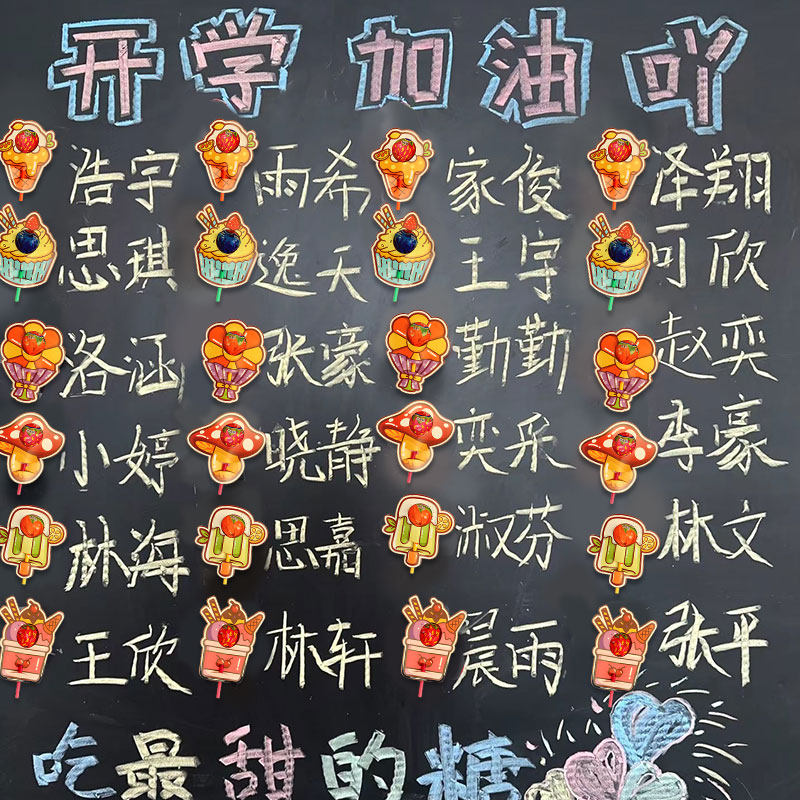 开学 加油吖
浩宇 雨希 家俊 泽翔
思琪 逸天 王宇 可欣
洛涵 张豪 勤勤 赵奕
小婷 晓静 奕采 李豪
林海 思嘉 淑芬 林文
王欣 林轩 晨雨 张平
吃最甜的糖